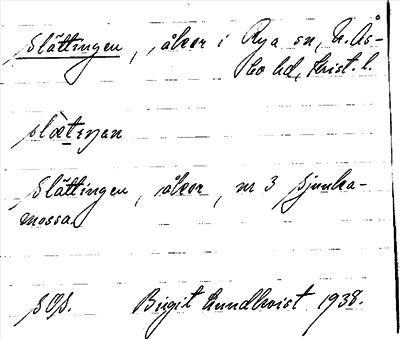 Slättingen, åker i Rya sn, N. Ås-
bo hd, Krist. l.
slætıŋan
Slättingen, åker, nr 3 Sjunka-
mossa.
SOS. Birgit Lundkvist 1938.